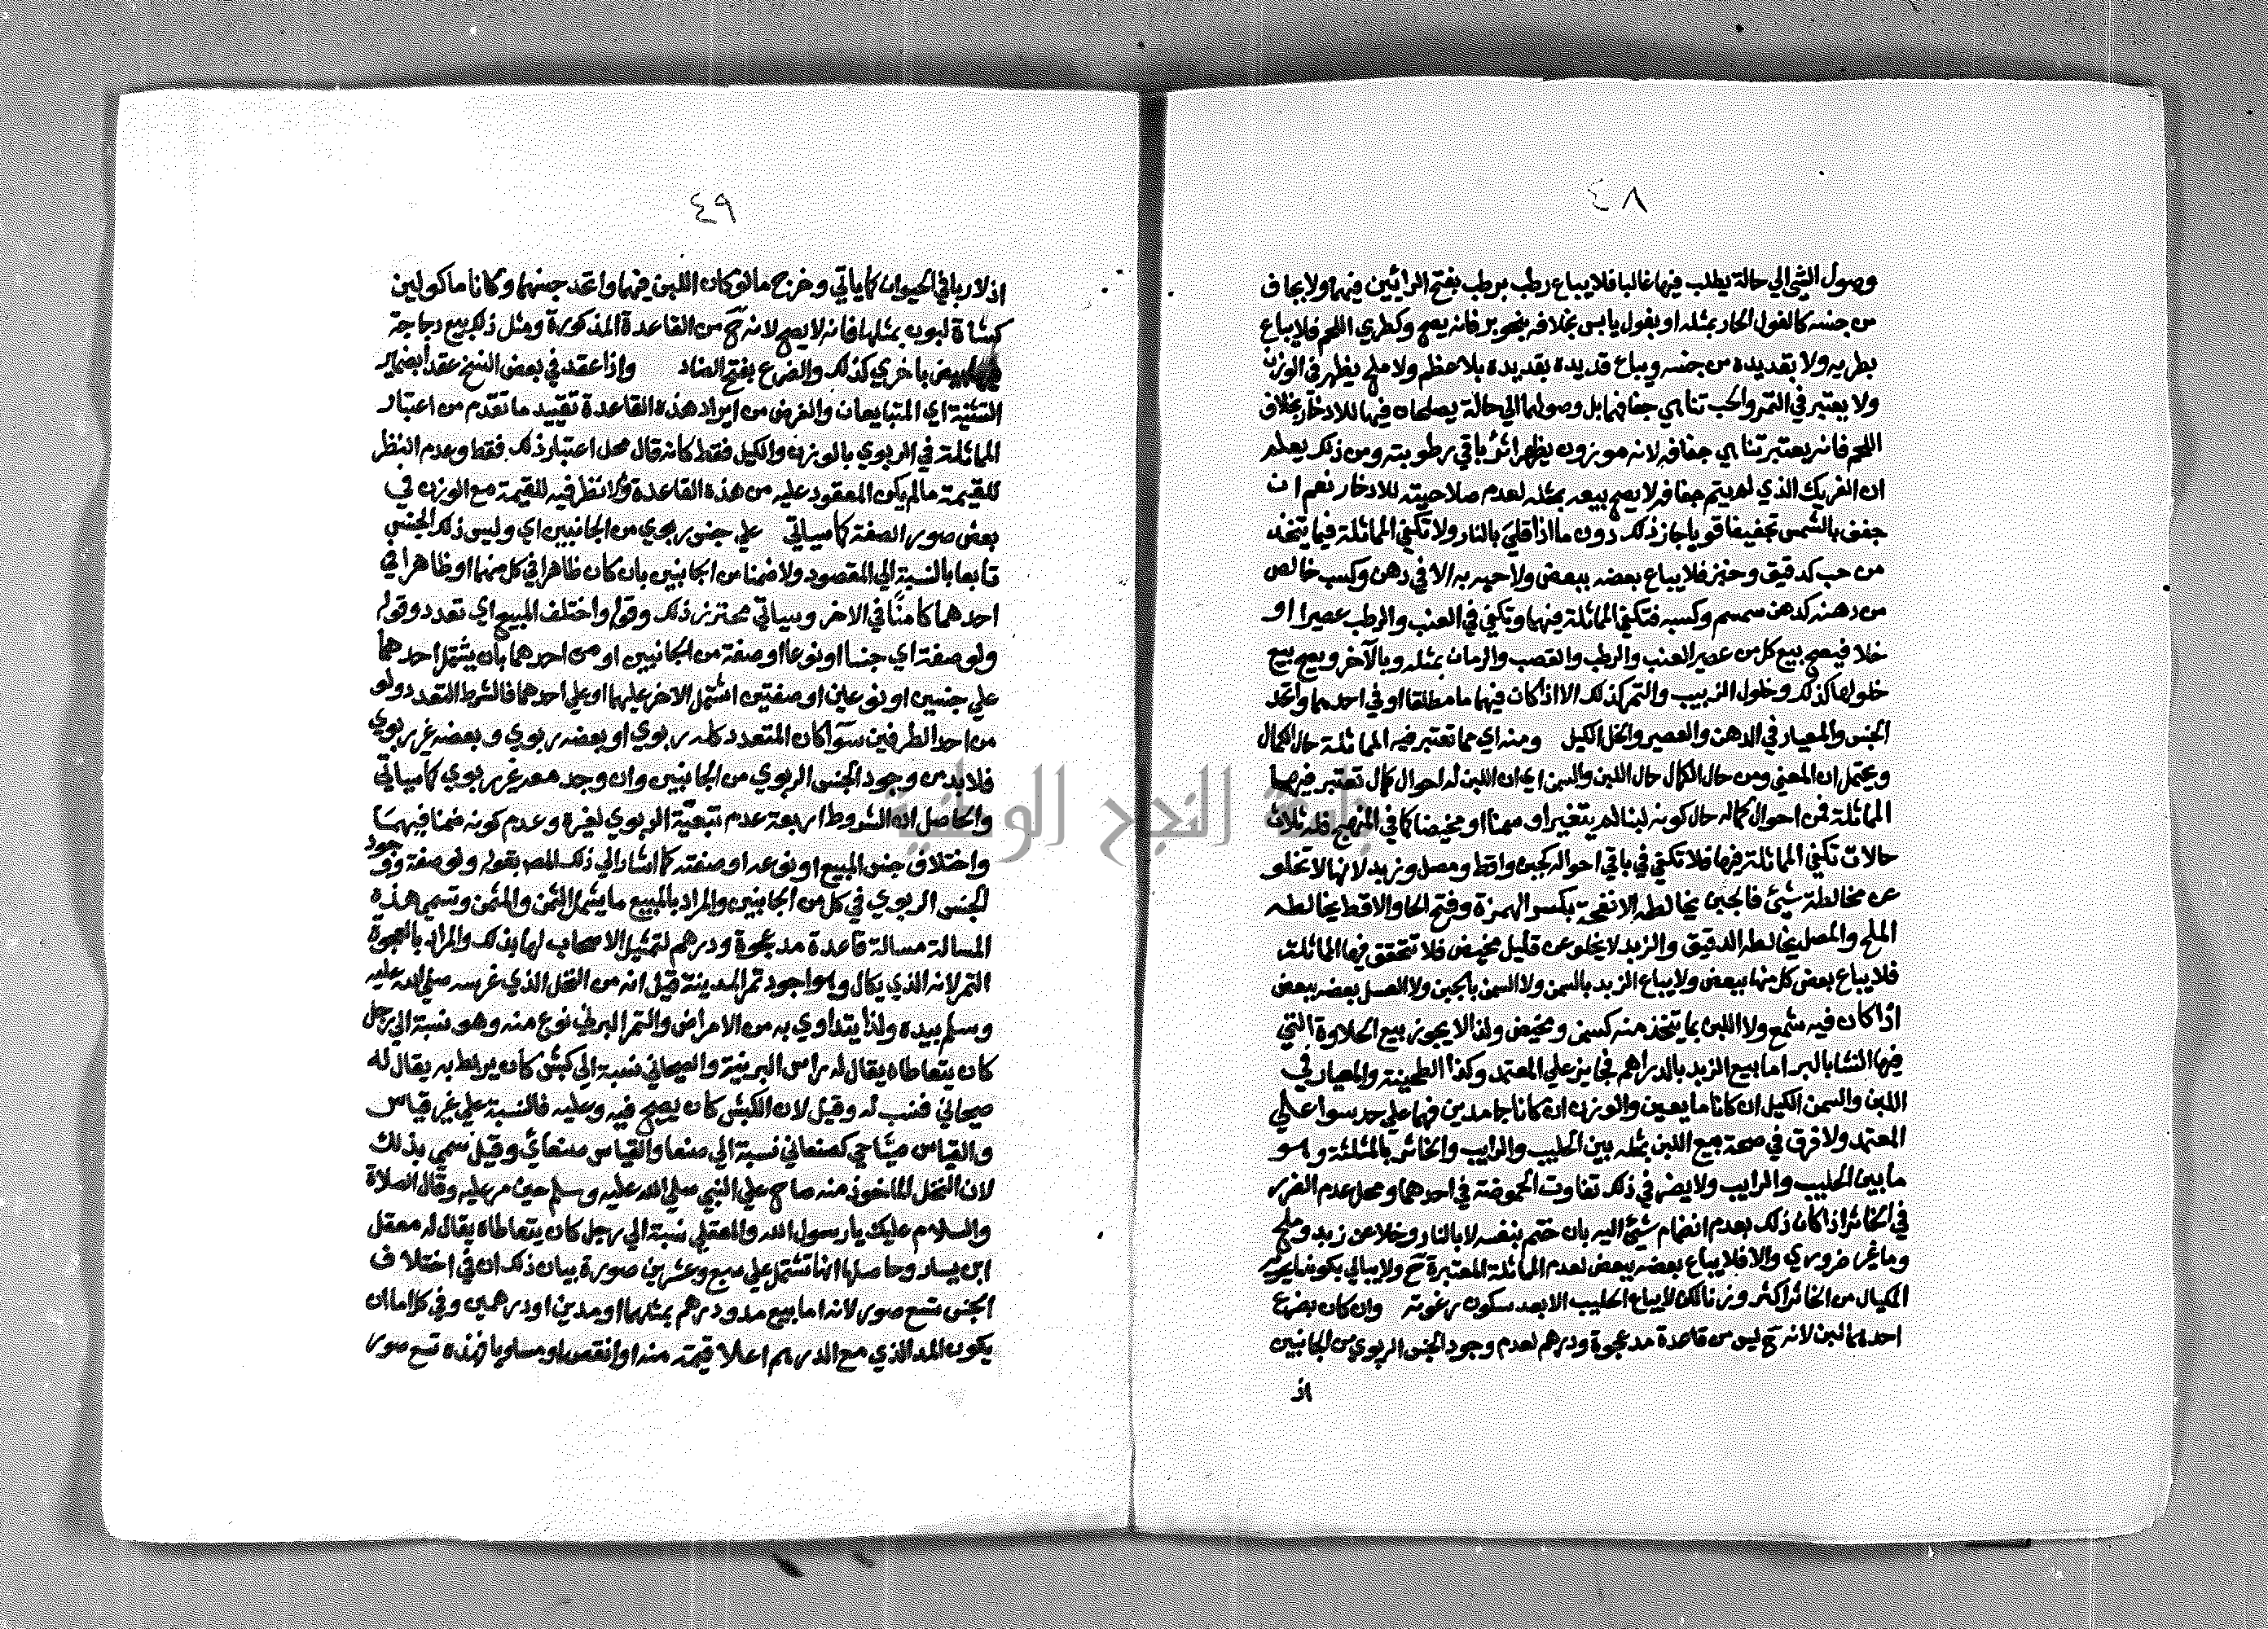 ٤٨
وصول الشي الي حالة يطلب فيها غالبا فلا يباع رطب برطب بفتح الرائين فيهما ولا بجاف
من جنسه كالفول الحار بمثله او بفول يابس بخلافه بنحو بر فانه يصح وكطري اللحم فلا يباع
بطريه ولا بقديده من جنسه ويباع قديده بقديده بلا عظم ولا ملح يظهر في الوزن
ولا يعتبر في التمر والحب تناهي جفافهما بل وصولهما الي حالة يصلحان فيها للادخار بخلاف
اللحم فانه يعتبر تناهي جفافه لانه موزون يظهر اثر باقي رطوبته ومن ذلك يعلم
ان الفريك الذي لم يتم جفافه لا يصح بيعه بمثله لعدم صلاحيته للادخار نعم ان
جفف بالشمس تجفيفا قويا جاز ذلك دون ما اذا قلي بالنار ولا تكفي المماثلة فيما يتخذ
من حب كدقيق وخبز فلا يباع بعضه ببعض ولا حبه به الا في دهن وكسب خالص
من دهنه كدهن سمسم وكسبه فتكفي المماثلة فيهما وتكفي في العنب والرطب عصيرا او
خلا فيصح بيع كل من عصير العنب والرطب والقصب والرمان بمثله وبالآخر ويصح بيع
خلولها كذلك وخلول الزبيب والتمر كذلك الا اذا كان فيهما ما مطلقا او في احدهما واتحد
الجنس والمعيار في الدهن والعصير والخل الكيل ومنه اي مما تعتبر فيه المماثلة حال الكمال
ويحتمل ان المعني ومن حال الكمال حال اللبن والسمن اي ان اللبن له احوال كمال تعتبر فيها
المماثلة فمن احوال كماله حال كونه لبنا لم يتغير او سمنا او مخيضا كما في المنهج فله ثلاث
حالات تكفي المماثلة فيها فلا تكفي في باقي احواله كجبن واقط ومصل وزبد لانها لا تخلو
عن مخالطة شيئ فالجبن يخالطه الانفحة بكسر الهمزة وفتح الحا والاقط يخالطه
الملح والمصل يخالطه الدقيق والزبد لا يخلو عن قليل مخيض فلا تتحقق فيها المماثلة
فلا يباع بعض كل منها ببعض ولا يباع الزبد بالسمن ولا السمن بالجبن ولا العسل بعضه ببعض
اذا كان فيه شمع ولا اللبن بما يتخذ منه كسمن ومخيض ولذا لا يجوز بيع الحلاوة التي
فيها النشا بالبر اما بيع الزبد بالدراهم فجايز علي المعتمد وكذا الطحينة والمعيار في
اللبن والسمن الكيل ان كانا مايعين والوزن ان كانا جامدين فهما علي حد سوا علي
المعتمد ولا فرق في صحة بيع اللبن بمثله بين الحليب والرايب والخاثر بالمثلثة وهو
ما بين الحليب والرايب ولا يضر في ذلك تفاوت الحموضة في احدهما ومحل عدم الضرر
في الخاثر اذا كان ذلك بعدم انضمام شيئ اليه بان ختم بنفسه لا بالنار وخلا عن زبد وملح
وما غير ضروري والا فلا يباع بعضه ببعض لعدم المماثلة المعتبرة ح ولا يبالي بكون ما يحويه
المكيال من الخاثر اكثر وزنا لكن لا يباع الحليب الا بعد سكون رغوته وان كان بضرع
احدهما لبن لانه ح ليس من قاعدة مد عجوة ودرهم لعدم وجود الجنس الربوي من الجانبين
اذ
٤٩
اذ لا ربا في الحيوان كما ياتي وخرج ما لو كان اللبن فيهما واتحد جنسهما وكانا ماكولين
كشاة لبون بمثلها فانه لا يصح لانه ح من القاعدة المذكورة ومثل ذلك بيع دجاجة
ببيض باخري كذلك والضرع بفتح الضاد واذا عقد في بعض النسخ عقدا بضمير
التثنية اي المتبايعان والغرض من ايراد هذه القاعدة تقييد ما تقدم من اعتبار
المماثلة في الربوي بالوزن والكيل فقط كانه قال محل اعتبار ذلك فقط وعدم النظر
للقيمة ما لم يكن المعقود عليه من هذه القاعدة والا نظر فيه للقيمة مع الوزن في
بعض صور الصفة كما سياتي علي جنس ربوي من الجانبين اي وليس ذلك الجنس
تابعا بالنسبة الي المقصود ولا ضمنا من الجانبين بان كان ظاهرا في كل منهما او ظاهرا في
احدهما كامنا في الاخر وسياتي محترز ذلك وقوله واختلف المبيع اي تعدد وقوله
ولو صفة اي جنسا او نوعا او صفة من الجانبين او من احدهما بان يشتمل احدهما
علي جنسين او نوعين او صفتين اشتمل الاخر عليهما او علي احدهما فالشرط التعدد ولو
من احد الطرفين سوآ كان المتعدد كله ربوي او بعضه ربوي وبعضه غير ربوي
فلا بد من وجود الجنس الربوي من الجانبين وان وجد معه غير ربوي كما سياتي
والحاصل ان الشروط اربعة عدم تبعية الربوي لغيره وعدم كونه ضمنا فيهما
واختلاف جنس المبيع او نوعه او صفته كما اشار الي ذلك المص بقوله ولو صفة ووجود
الجنس الربوي في كل من الجانبين والمراد بالمبيع ما يشمل الثمن والمثمن وتسمي هذه
المسالة مسالة قاعدة مد عجوة ودرهم لتمثيل الاصحاب لها بذلك والمراد بالعجوة
التمر لانه الذي يكال وهو اجود تمر المدينة قيل انه من النخل الذي غرسه صلي الله عليه
وسلم بيده ولذا يتداوي به من الامراض والتمر البرني نوع منه وهو نسبة الي رجل
كان يتعاطاه يقال له راس البرنية والصيحاني نسبة الي كبش كان يربط به يقال له
صيحاني فنسب له وقيل لان الكبش كان يصيح فيه وعليه فالنسبة علي غير قياس
والقياس صياحي كصنعاني نسبة الي صنعا والقياس صنعائي وقيل سمي بذلك
لان النخل الماخوذ منه صاح علي النبي صلي الله عليه وسلم حين مر عليه وقال الصلاة
والسلام عليك يا رسول الله والمعقلي نسبة الي رجل كان يتعاطاه يقال له معقل
ابن يسار وحاصلها انها تشتمل علي سبع وعشرين صورة بيان ذلك ان في اختلاف
الجنس تسع صور لانه اما بيع مد ودرهم بمثلهما او مدين او درهمين وفي كل اما ان
يكون المد الذي مع الدرهم اعلا قيمة منه او انقص او مساويا فهذه تسع صور